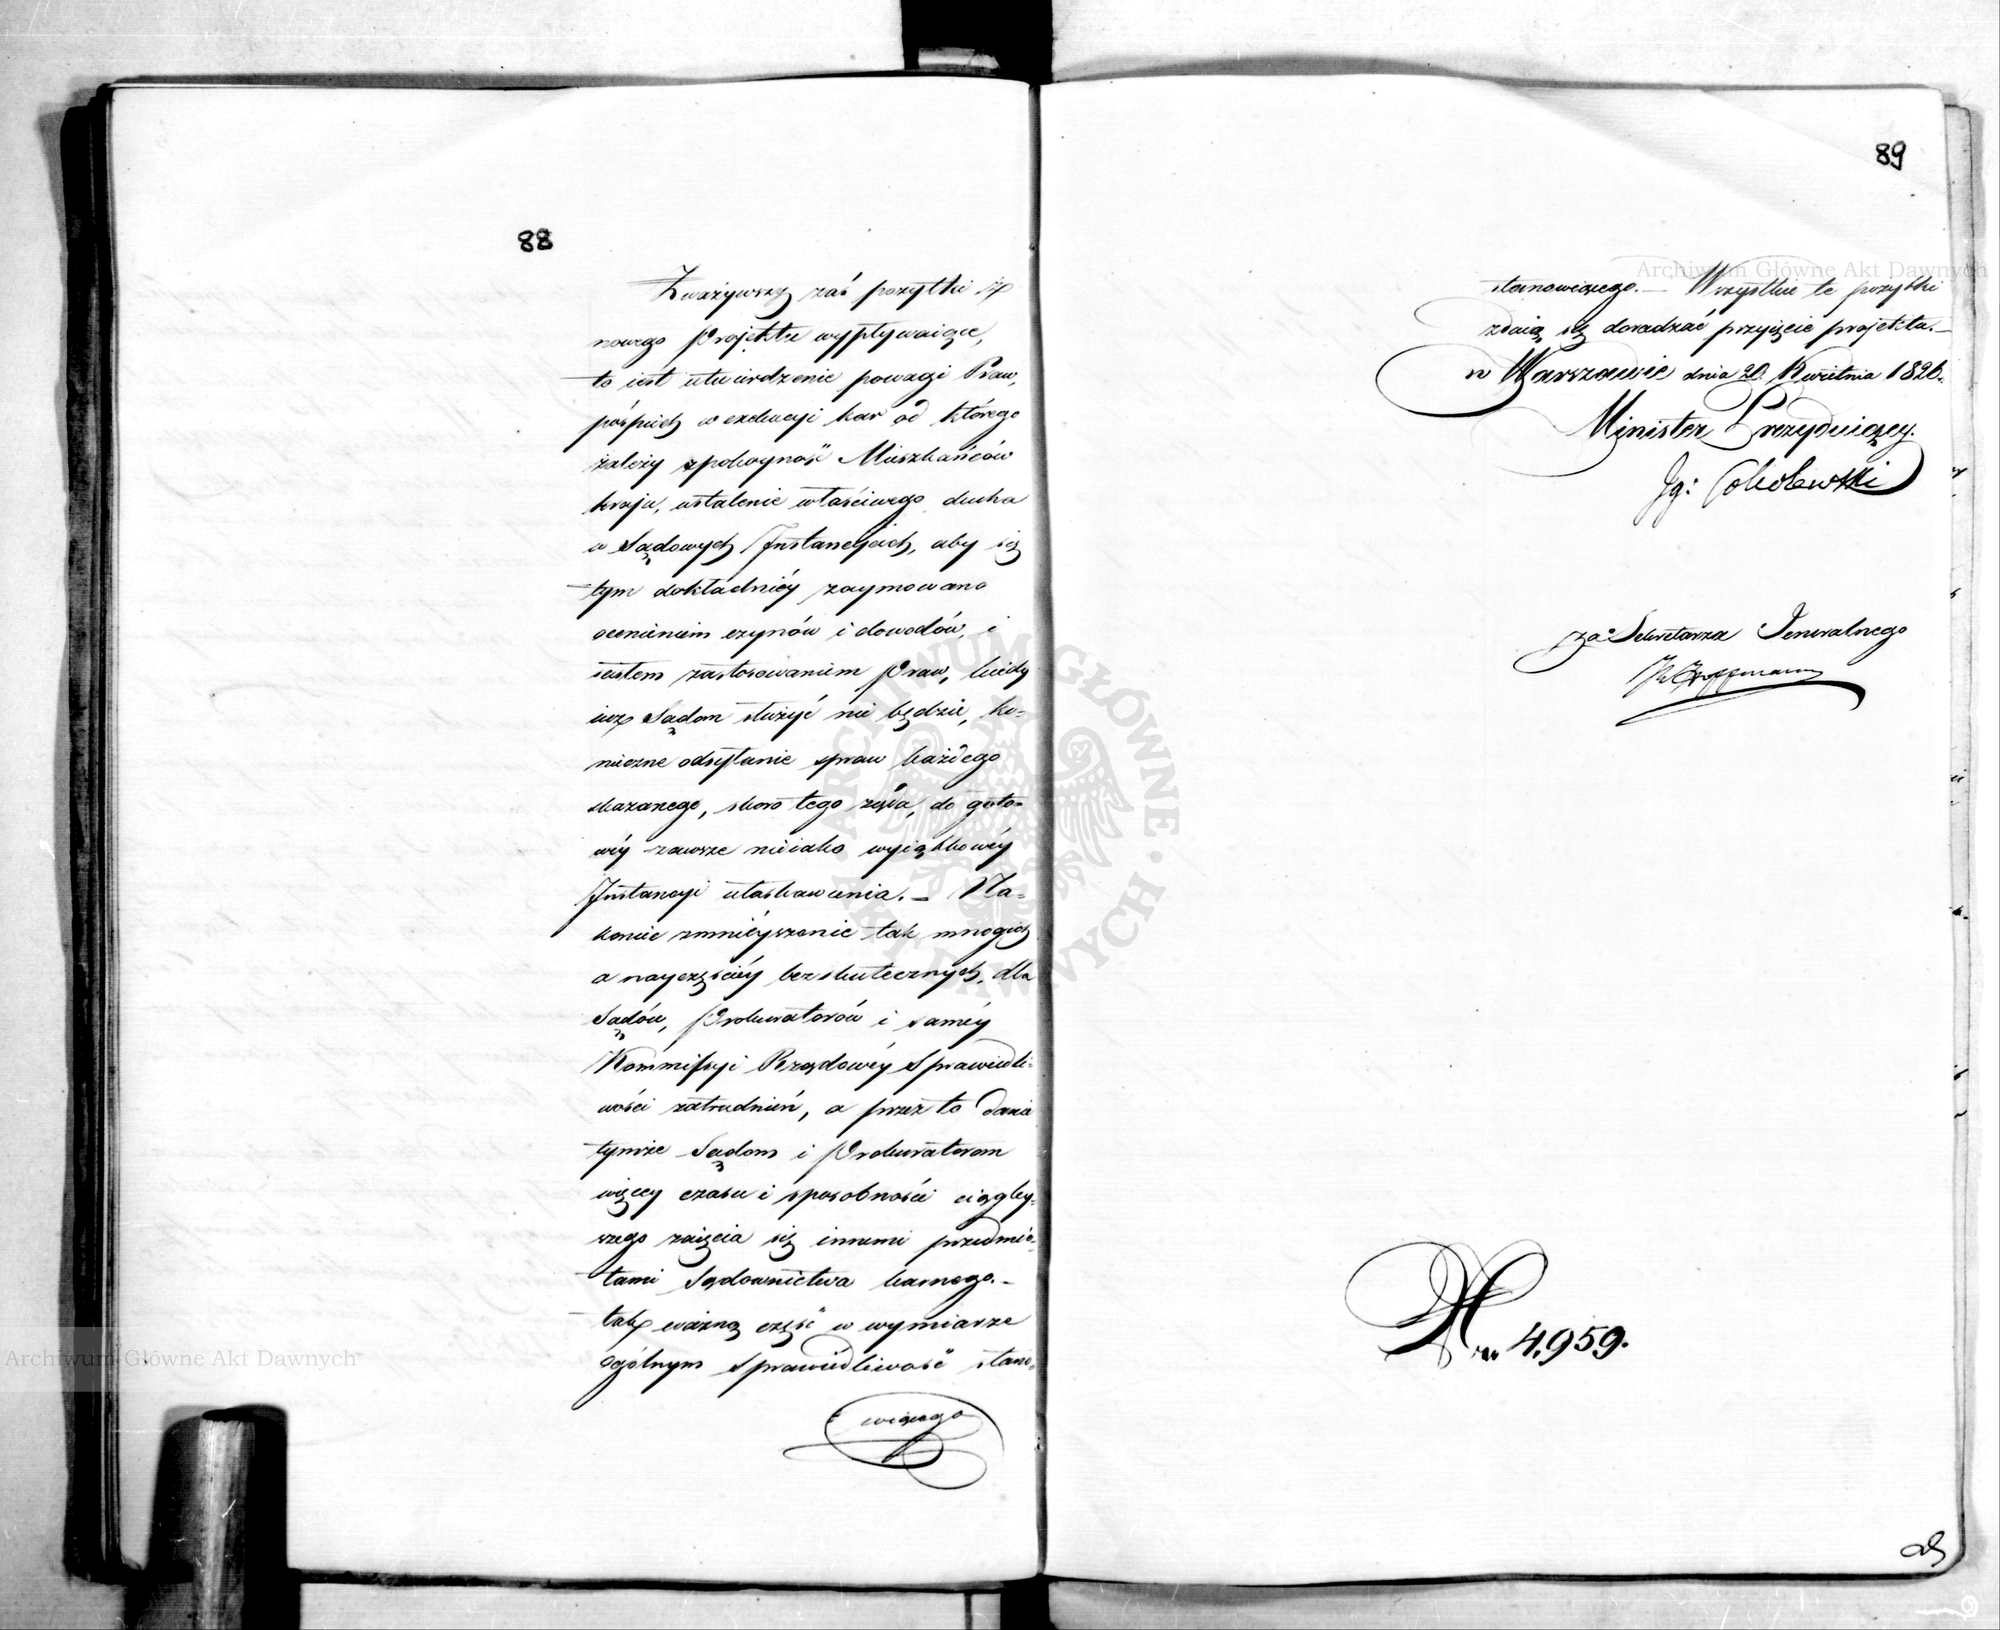 88
Zważywszy zaś pożytki z
nowego Projektu wypływaiące,
to iest utwierdzenie powagi Praw,
pośpiech w exekucyi kar od którego
zależy spokoyność Mieszkańców
kraju, ustalenie właściwego ducha
w Sądowych Instancyiach, aby się
tym dokładniéy zaymowano
ocenieniem czynów i dowodów, i
zastosowaniem Praw, kiedy
iuż Sądom służyć nie będzie, ko-
nieczne odsyłanie spraw każdego
skazanego, skoro tego żąda, do goto-
wéy zawsze nieiako wyiątkowéy
Instancyi ułaskawienia. — Na-
koniec zmnieyszenie tak mnogich
a nayczęściéy bezskutecznych, dla
Sądów, Prokuratorów i saméy
Kommissyi Rządowéy Sprawiedli-
wości zatrudnień, a przez to dania
tymże Sądom i Prokuratorom
więcéy czasu i sposobności ciągley-
szego zaięcia się innemi przedmio-
tami Sądownictwa karnego. —
tak ważną część w wymiarze
ogólnym Sprawiedliwość stano-
wiącego
89
stanowiącego. — Wszystkie te pożytki
zdaią się doradzać przyięcie projektu. —
w Warszawie dnia 20 Kwietnia 1826.
Minister Prezyduiący.
Ig: Sobolewski
za Sekretarza Jeneralnego
Hoffmann
Nr. 4.959.
Archiwum Główne Akt Dawnych
Archiwum Główne Akt Dawnych
ARCHIWUM GŁÓWNE AKT DAWNYCH